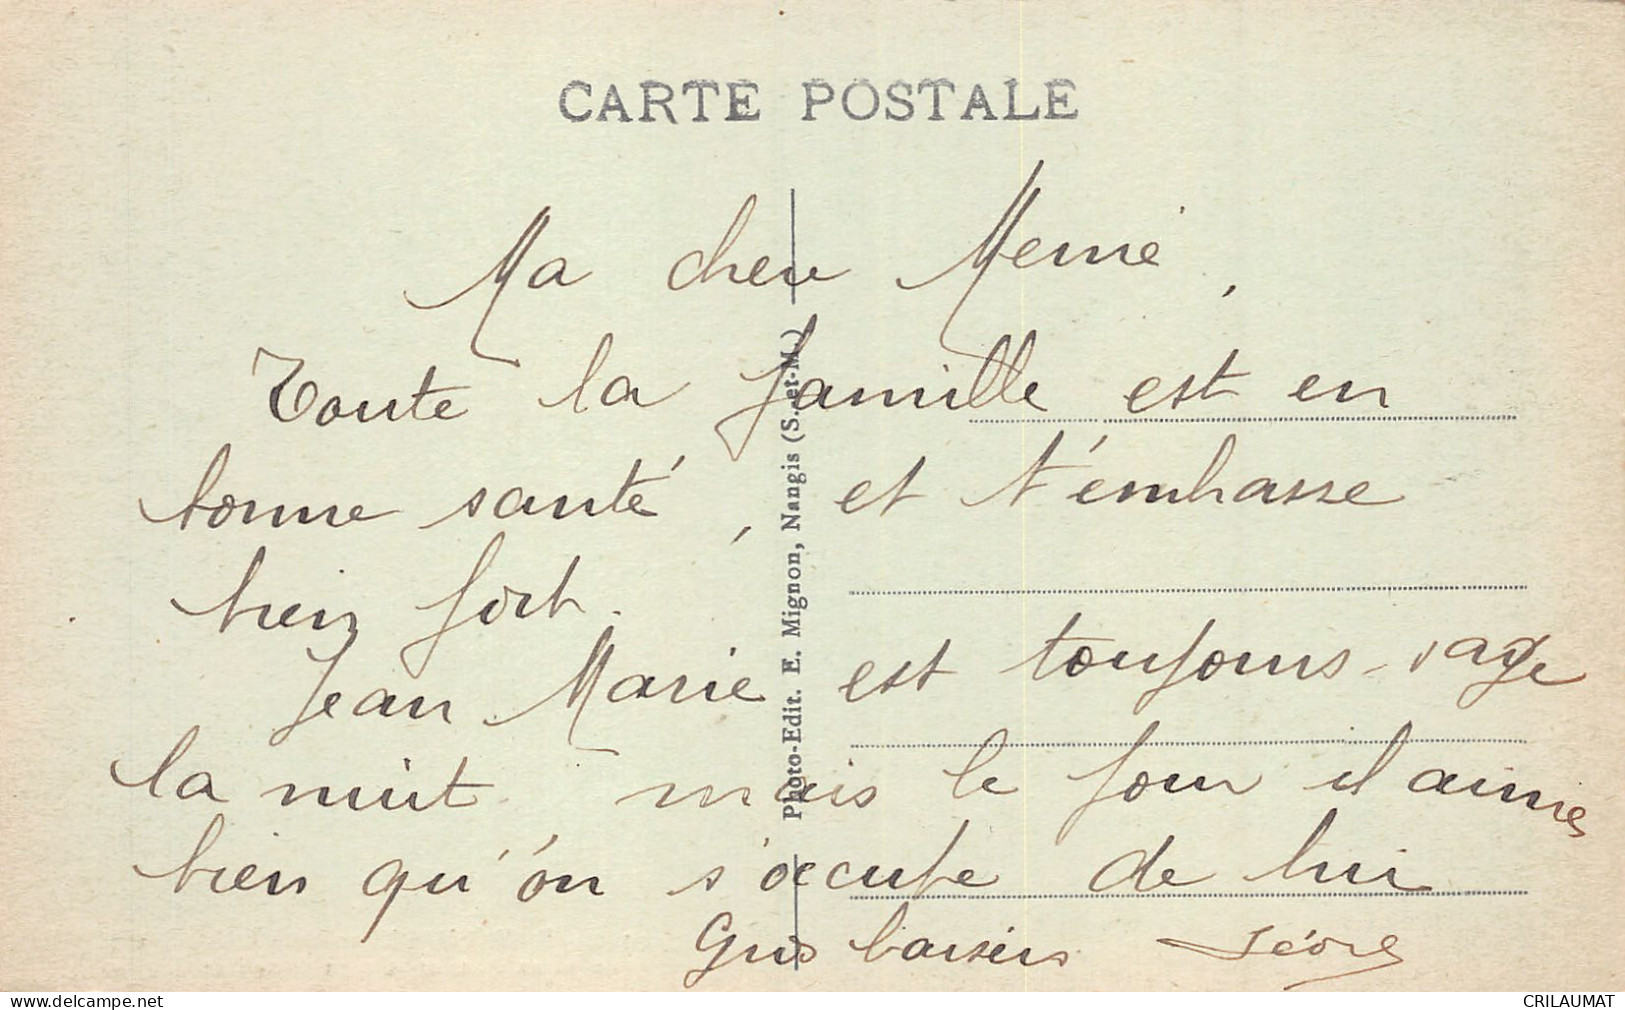 CARTE POSTALE
Ma cher Memé,
Toute la famille est en
bonne santé, et t'émbrasse
bien fort.
Jean Marie est toujours sage
la nuit mais le jour il aime
bien qu'on s'occupe de lui
Gros baisers
Photo-Edit. E. Mignon, Nangis (S.-et-M.)
www.delcampe.net
CRILAUMAT